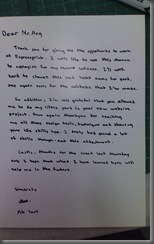 Dear Mr. Ang
Thank you for giving me the opportunity to work
at Expressprint. I would like to use this chance
to apologize for my recent lateness. I'll work
hard to change this bad habit away for good,
once again sorry for the mistake that I've made.
In addition, I'm very grateful that you allowed
me to be a little part in your new website
project. Once again thankyou for teaching
me all those design tools, techniques and sharing
your life skills tips. I truly had gained a lot
of skills through out this attachment.
Lastly, thanks for the treat last thursday
and I hope that what I have learned here will
help me in the future.
Sincerely